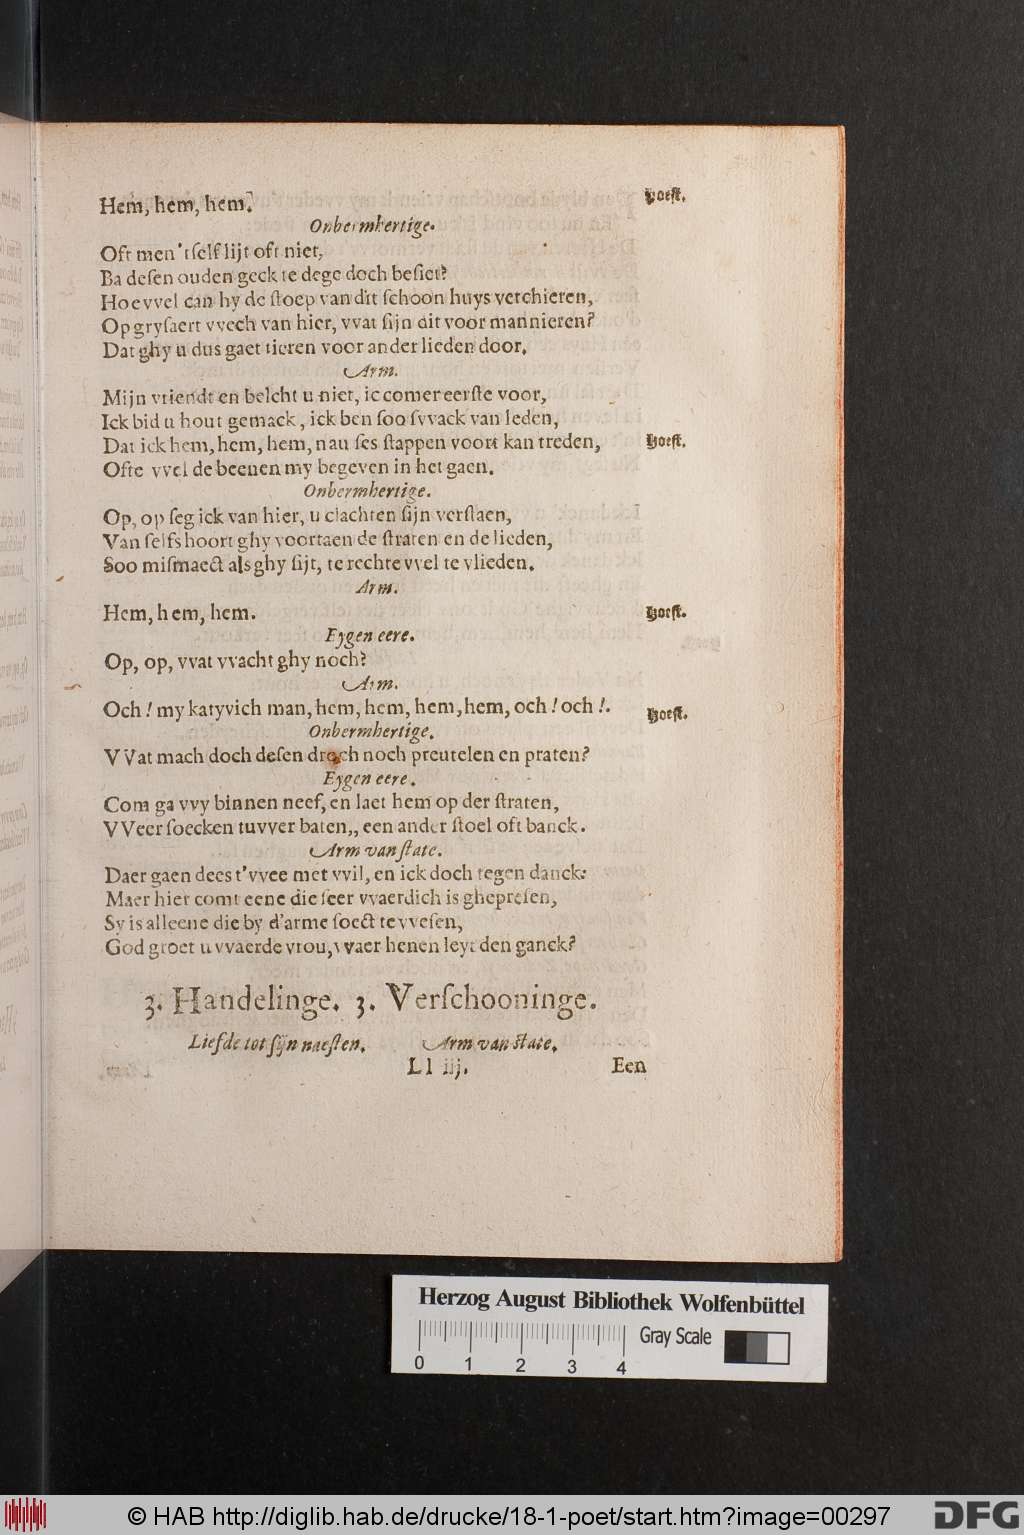 Hem, hem, hem. Hoest.
Onbermhertige.
Oft men 't ſelf lijt oft niet,
Ba deſen ouden geck te dege doch beſiet?
Hoe vvel can hy de ſtoep van dit ſchoon huys verchieren,
Op gryſaert vvech van hier, vvat ſijn dit voor mannieren?
Dat ghy u dus gaet tieren voor ander lieden door.
Arm.
Mijn vriendt en belcht u niet, ic comer eerſte voor,
Ick bid u hout gemack, ick ben ſoo ſvvack van leden,
Dat ick hem, hem, hem, nau ſes ſtappen voort kan treden, Hoeſt.
Ofte vvel de beenen my begeven in het gaen.
Onbermhertige.
Op, op ſeg ick van hier, u clachten ſijn verſtaen,
Van ſelfs hoort ghy voortaen de ſtraten en de lieden,
Soo miſmaect als ghy ſijt, te rechte vvel te vlieden.
Arm.
Hem, hem, hem. Hoeſt.
Eygen eere.
Op, op, vvat vvacht ghy noch?
Arm.
Och! my katyvich man, hem, hem, hem, hem, och! och!. Hoeſt.
Onbermhertige.
VVat mach doch deſen droch noch preutelen en praten?
Eygen eere.
Com ga vvy binnen neef, en laet hem op der ſtraten,
VVeer ſoecken tuvver baten,, een ander ſtoel oft banck.
Arm van ſtate.
Daer gaen dees t'vvee met vvil, en ick doch tegen danck:
Maer hier comt eene die ſeer vvaerdich is ghepreſen,
Sy is alleene die by d'arme ſoect te vveſen,
God groet u vvaerde vrou, vvaer henen leyt den ganck?
3. Handelinge. 3. Verſchooninge.
Liefde tot ſijn naeſten. Arm van ſtate.
Ll iij. Een
Herzog August Bibliothek Wolfenbüttel
Gray Scale
0 1 2 3 4
© HAB http://diglib.hab.de/drucke/18-1-poet/start.htm?image=00297
DFG